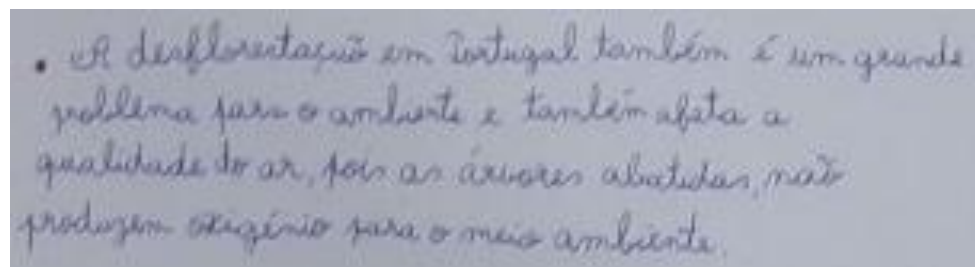 • A desflorestação em Portugal também é um grande
problema para o ambiente e também afeta a
qualidade do ar, pois as árvores abatidas, não
produzem oxigénio para o meio ambiente.